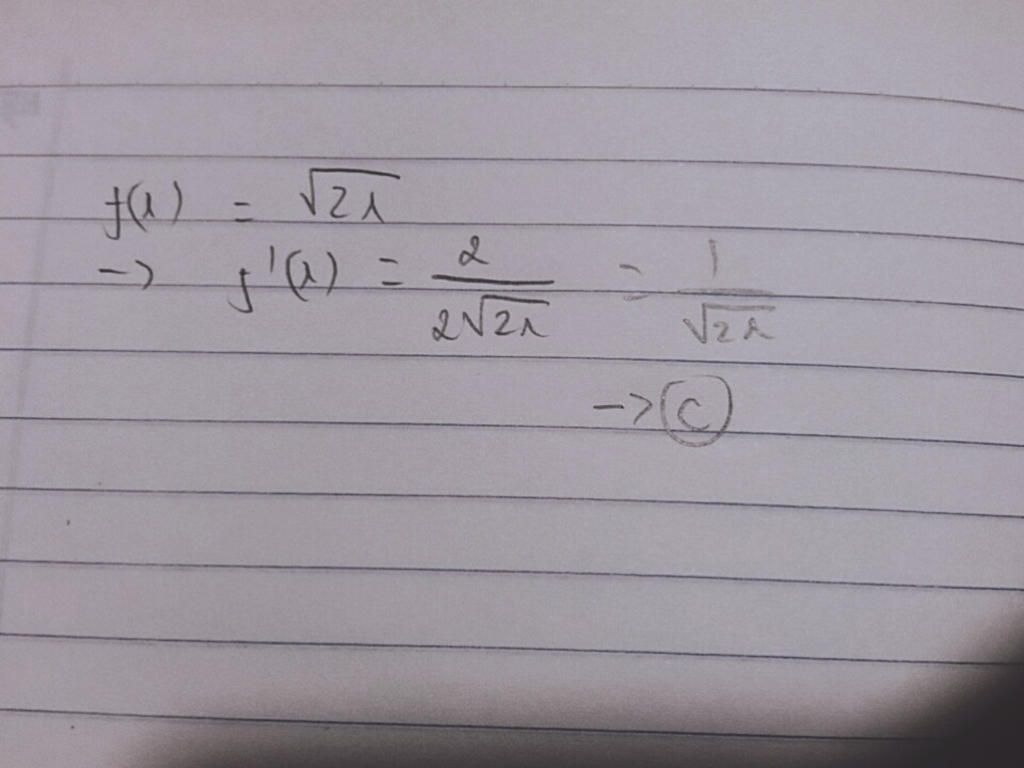 f(x) = √2x
-> f'(x) = 2/2√2x = 1/√2x
-> C